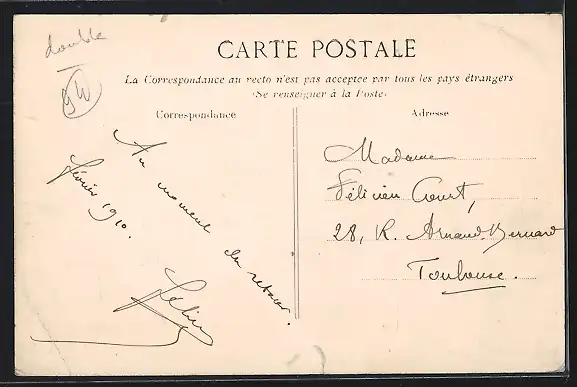 double
CARTE POSTALE
La Correspondance au recto n'est pas acceptée par tous les pays étrangers
(Se renseigner à la Poste)
Correspondance
Au moment du retour.
février 1910.
Adresse
Madame
Félicien Court,
28, R. Arnaud-Bernard
Toulouse.